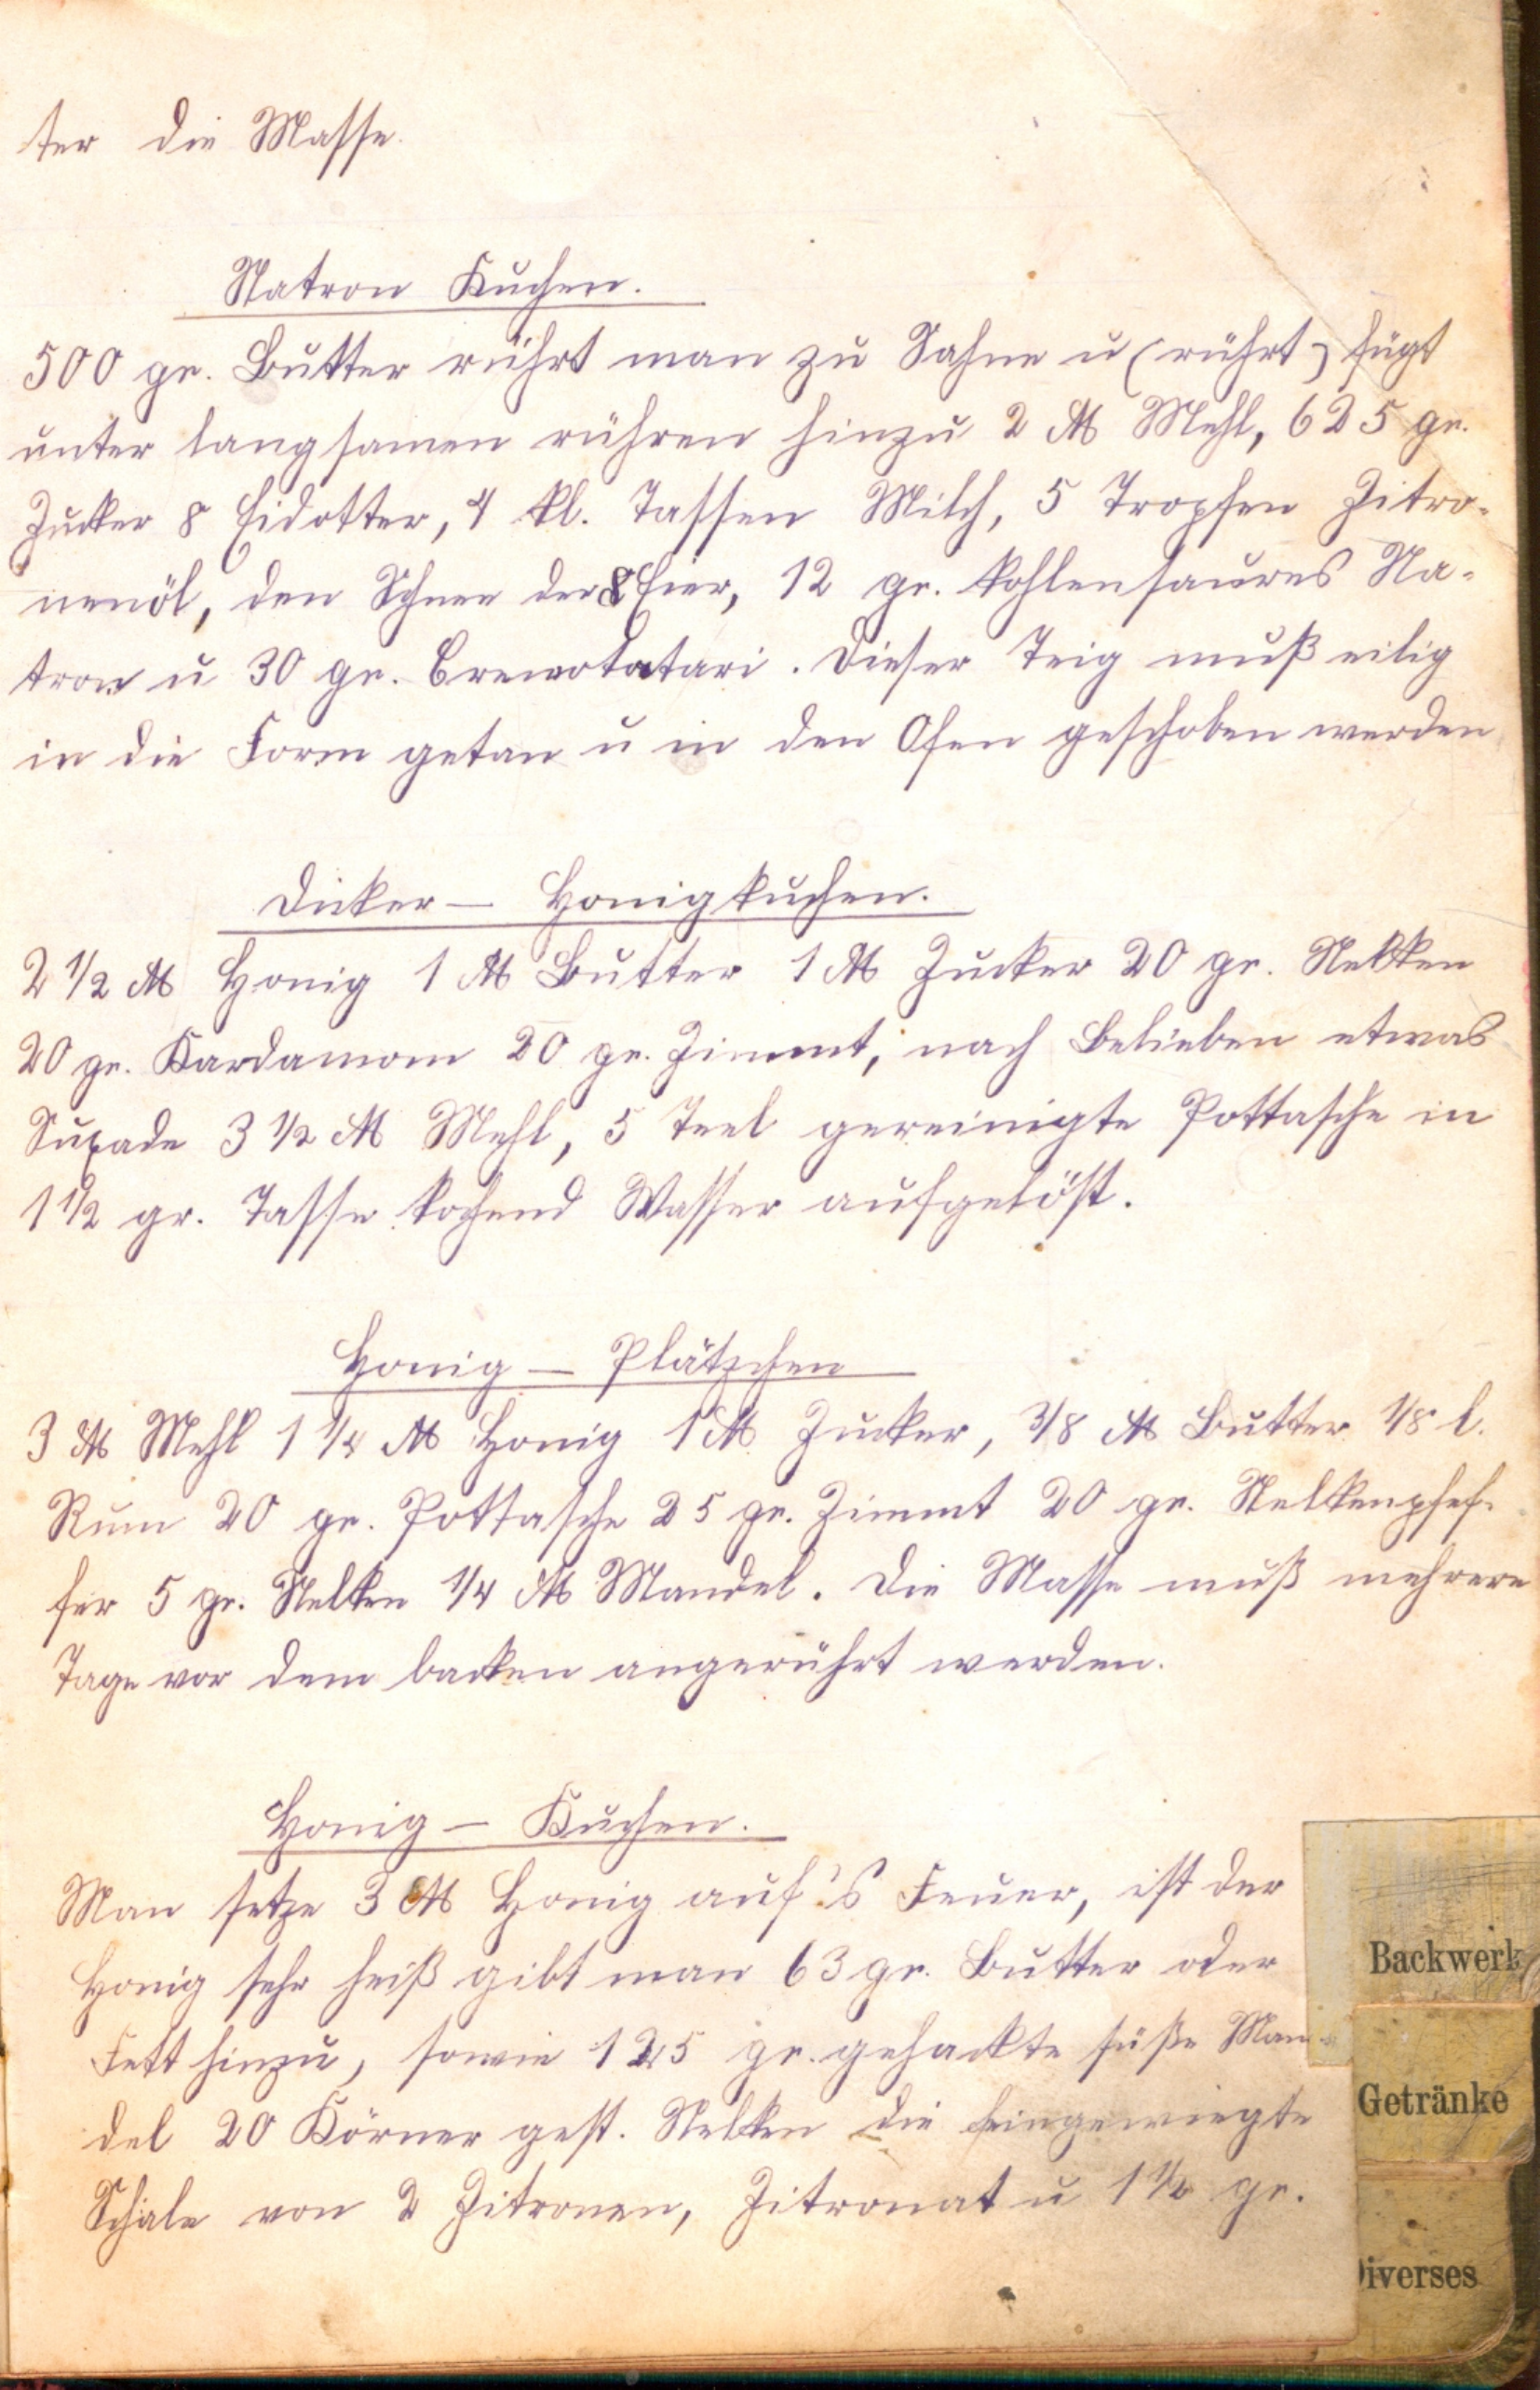 ter die Masse.
Natron Kuchen.
500 gr. Butter rührt man zu Sahne u (rührt) fügt
unter langsamen rühren hinzu 2 ℔ Mehl, 625 gr.
Zucker 8 Eidotter, 4 kl. Tassen Milch, 5 Tropfen Zitro-
nenöl, den Schnee der 8 Eier, 12 gr. kohlensaures Na-
tron u 30 gr. Cremotatari. Dieser Teig muß eilig
in die Form getan u in den Ofen geschoben werden
Dicker — Honigkuchen.
2 1/2 ℔ Honig 1 ℔ Butter 1 ℔ Zucker 20 gr. Nelken
20 gr. Kardamom 20 gr. Zimmt, nach Belieben etwas
Suxade 3 1/2 ℔ Mehl, 5 Teel gereinigte Pottasche in
1 1/2 gr. Tasse kochend Wasser aufgelöst.
Honig — Plätzchen
3 ℔ Mehl 1 1/4 ℔ Honig 1 ℔ Zucker, 3/8 ℔ Butter 1/8 l.
Rum 20 gr. Pottasche 25 gr. Zimmt 20 gr. Nelkenpfef-
fer 5 gr. Nelken 1/4 ℔ Mandel. Die Masse muß mehrere
Tage vor dem backen angerührt werden.
Honig — Kuchen.
Man setze 3 ℔ Honig auf's Feuer, ist der
Honig sehr heiß gibt man 63 gr. Butter oder
Fett hinzu, sowie 125 gr. gehackte süße Man-
del 20 Körner gest. Nelken die feingewiegte
Schale von 2 Zitronen, Zitronat u 1 1/2 gr.
Backwerk
Getränke
Diverses